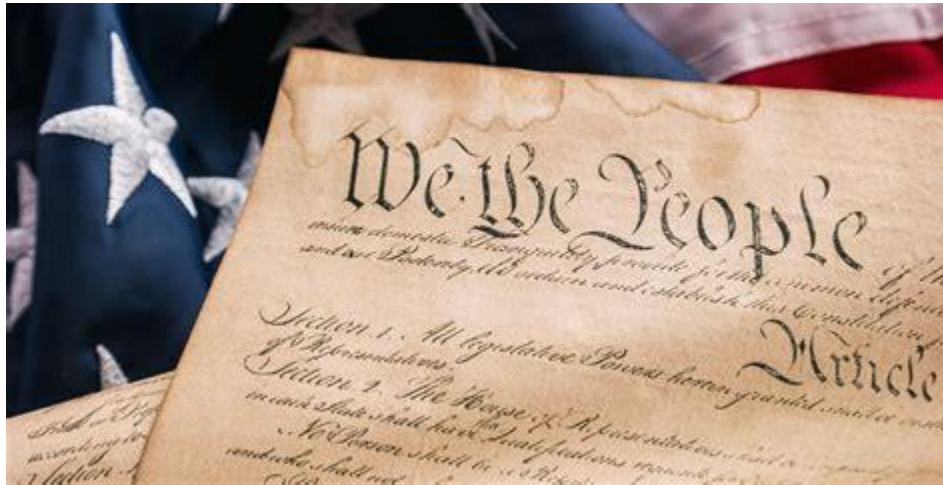 We the People of th
insure domestic Tranquility, provide for the common defence
and our Posterity, do ordain and establish this Constitution f
Article
Section 1. All legislative Powers herein granted shall be
of Representatives.
Section 2. The House of Representatives shall be
in each State shall have the Qualifications requisite
No Person shall be a Rep
and who shall not
Section